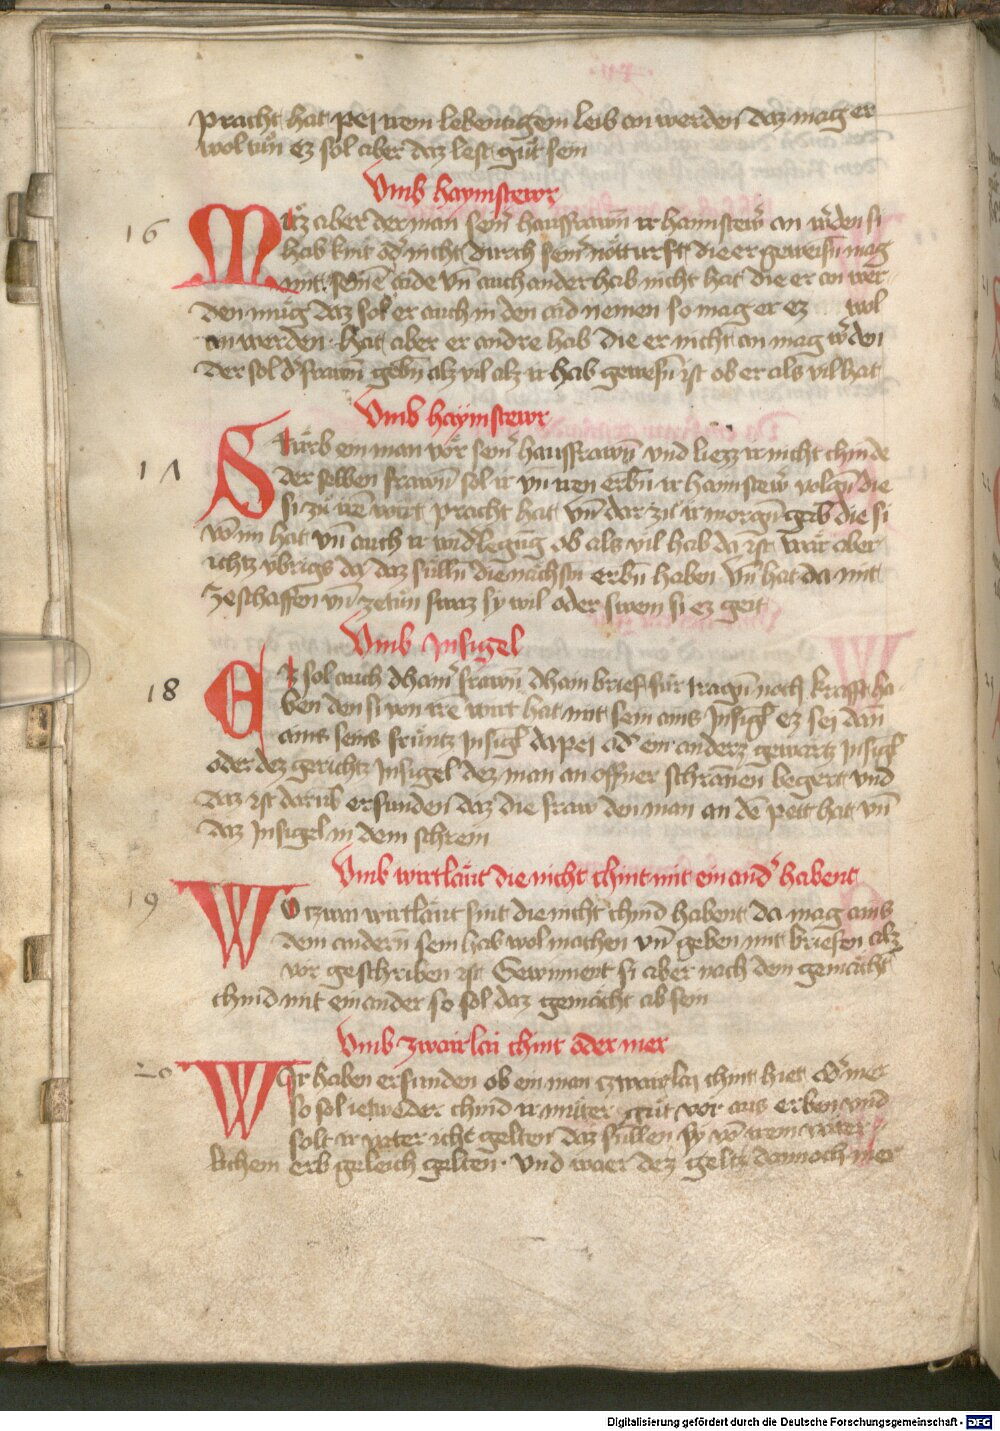 pracht hat pei irem lebentigem leib an werden daz mag er
wol tůn ez sol aber daz lest gůt sein
Vmb haymstewr
16 Můz aber der man seiner hausfrawn̄ ir haimstewr an werden si
hab kint oder nicht durch seiner notturft die er geweisn̄ mag
mit seine aide vn̄ auch ander hab nicht hat die er an wer
den mug daz sol er auch in den aid nemen so mag er ez wol
an werden. Hat aber er andre hab die er nicht an mag werden
der sol der frawn̄ gebn̄ alz vil alz ir hab gewesn̄ ist ob er als vil hat
Vmb haymstewr
17 Stůrb ein man vor seiner hausfrawn̄ vnd liezz ir nicht chinde
der selben frawn̄ sol ir vn̄ iren erbn̄ ir haimstewr volgn̄ die
si zů irē wirt pracht hat vn̄ dar zů ir morgn̄gab die si
vō im hat vn̄ auch ir widerlegūg ob als vil hab da ist wår aber
ichtz vbrigs da daz sulln̄ die nachstn̄ erbn̄ haben vn̄ hat da mit
ze schaffen vn̄ ze tůn swaz sy wil oder swem si ez geit
Vmb Insigel
18 Ez sol auch dhain frawn̄ dhain brief fůr tragn̄ noch krafft ha
ben den si von irē wirt hat mit sein ains Insigl ez sei dan̄
ains seins frůntz Insigl dapei oder ein anderz gewartz Insigl
oder dez gerichtz Insigel dez man an offner schrannen begert vnd
daz ist darūb erfunden daz die fraw den man an dē pett hat vn̄
daz Insigel in dem schrein
Vmb wirtlåut die nicht chint mit ein ander habent
19 Wo tzwai wirtlåut sint die nicht chind habent da mag ains
dem andern̄ sein hab wol machen vn̄ geben mit briefen alz
vor geschriben ist Gewinnent si aber nach dem gemåcht
chind mit einander so sol daz gemåcht ab sein
Vmb zwairlai chint oder mer
20 Wir haben erfunden ob ein man tzwairlay chint hiet oder mer
so sol ietweder chind ir můter gůt vor aus erben vnd
solt ir vater icht gelten daz sullen sy vō irem vater
lichem erb geleich gelten. vnd waer dez geltz dannoch mer
Digitalisierung gefördert durch die Deutsche Forschungsgemeinschaft - DFG